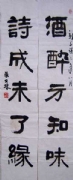 酒酣方知味
詩成未了緣